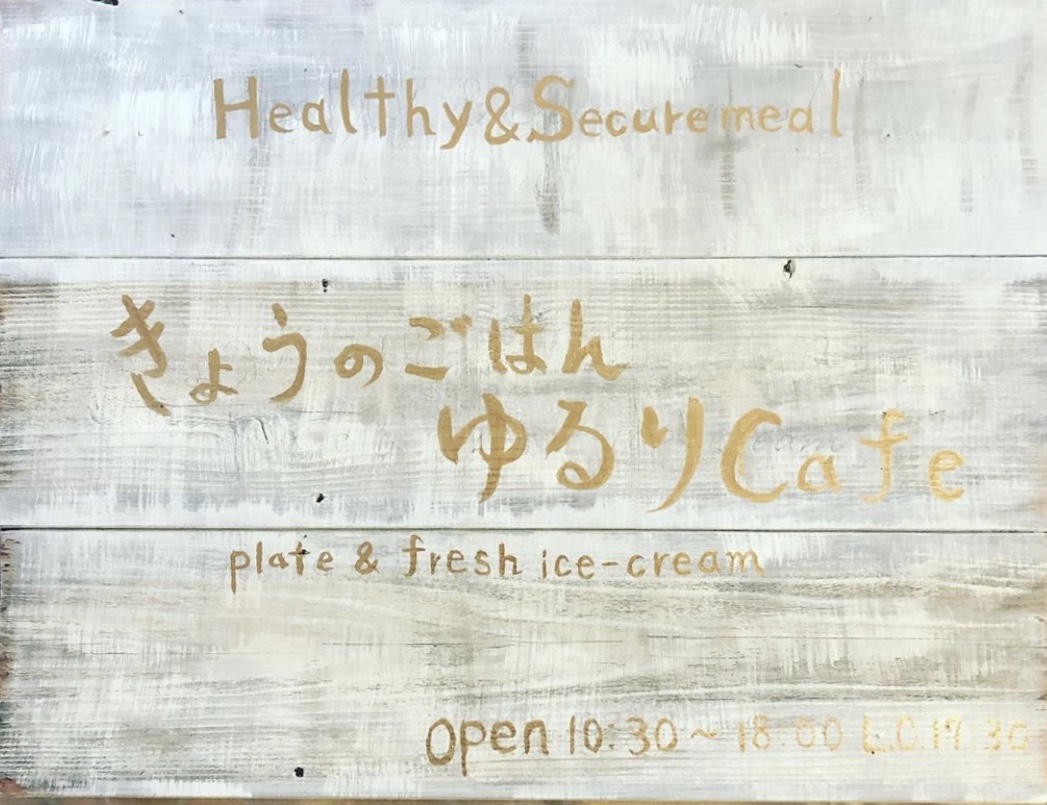 Healthy&Securemeal
きょうのごはん
ゆるりCafe
plate & fresh ice-cream
Open 10:30~18:00 L.O.17:30